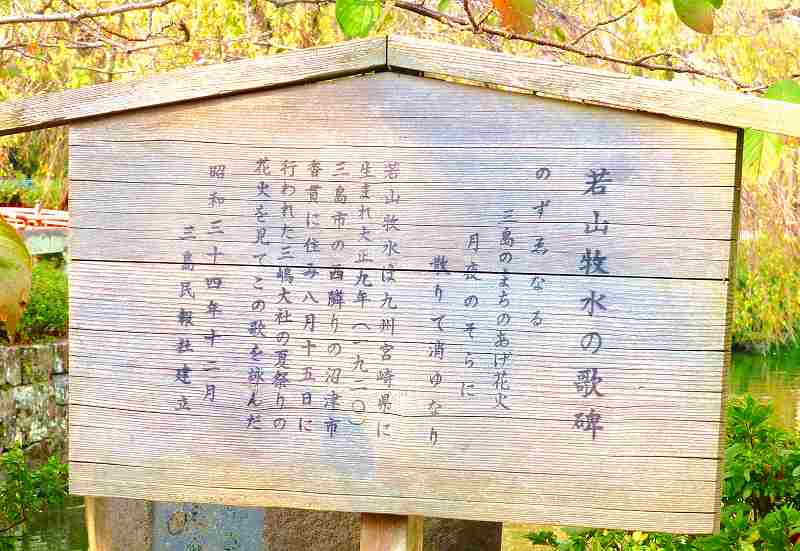 若山牧水の歌碑
のずゑなる
三島のまちのあげ花火
月夜のそらに
散りて消ゆなり
若山牧水は九州宮崎県に
生まれ大正九年(一九二〇)
三島市の西隣りの沼津市
香貫に住み八月十五日に
行われた三嶋大社の夏祭りの
花火を見てこの歌を詠んだ
昭和三十四年十二月
三島民報社建立